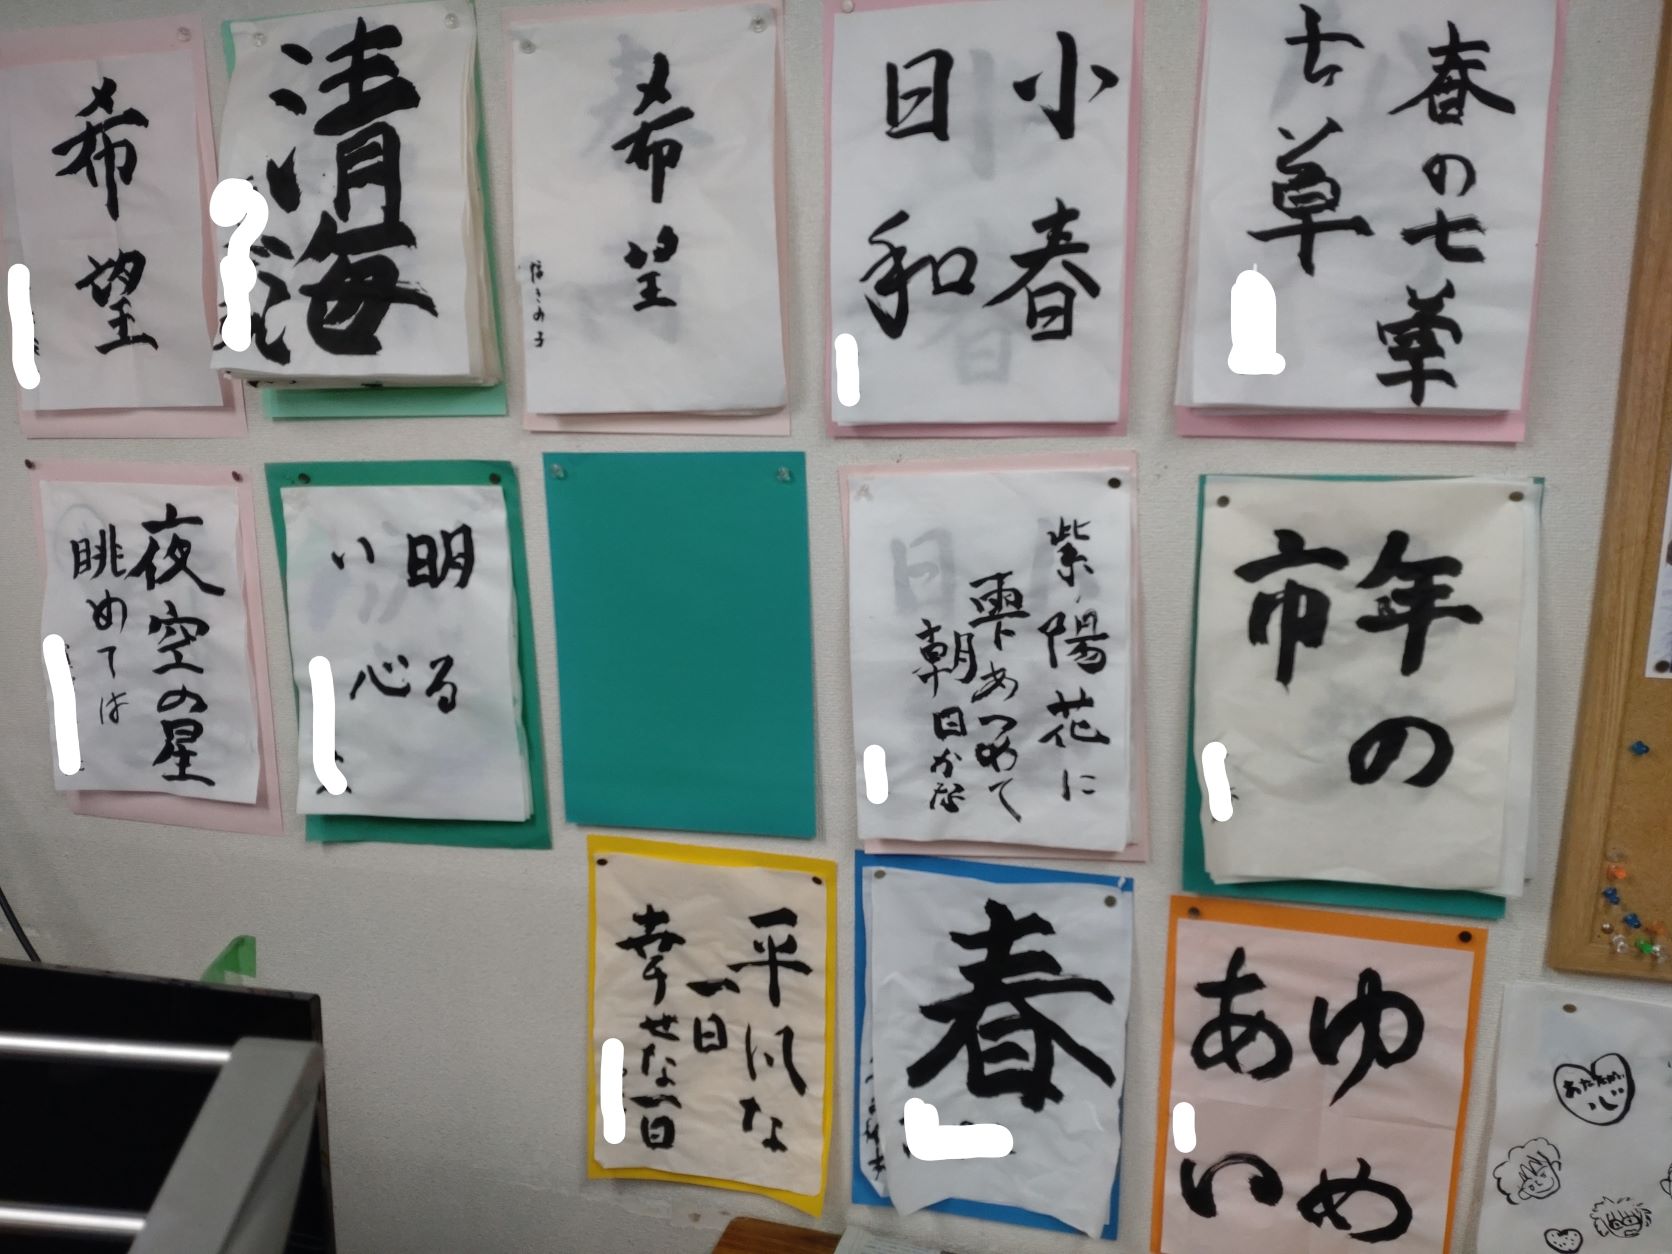 希望
清海
希望
小春
日和
春の七草
七草
夜空の星
眺めては
明る
い心
紫陽花に
雫あつめて
朝日かな
年の
市
平凡な
一日
幸せな一日
春
ゆめ
あい
あたたかい
心